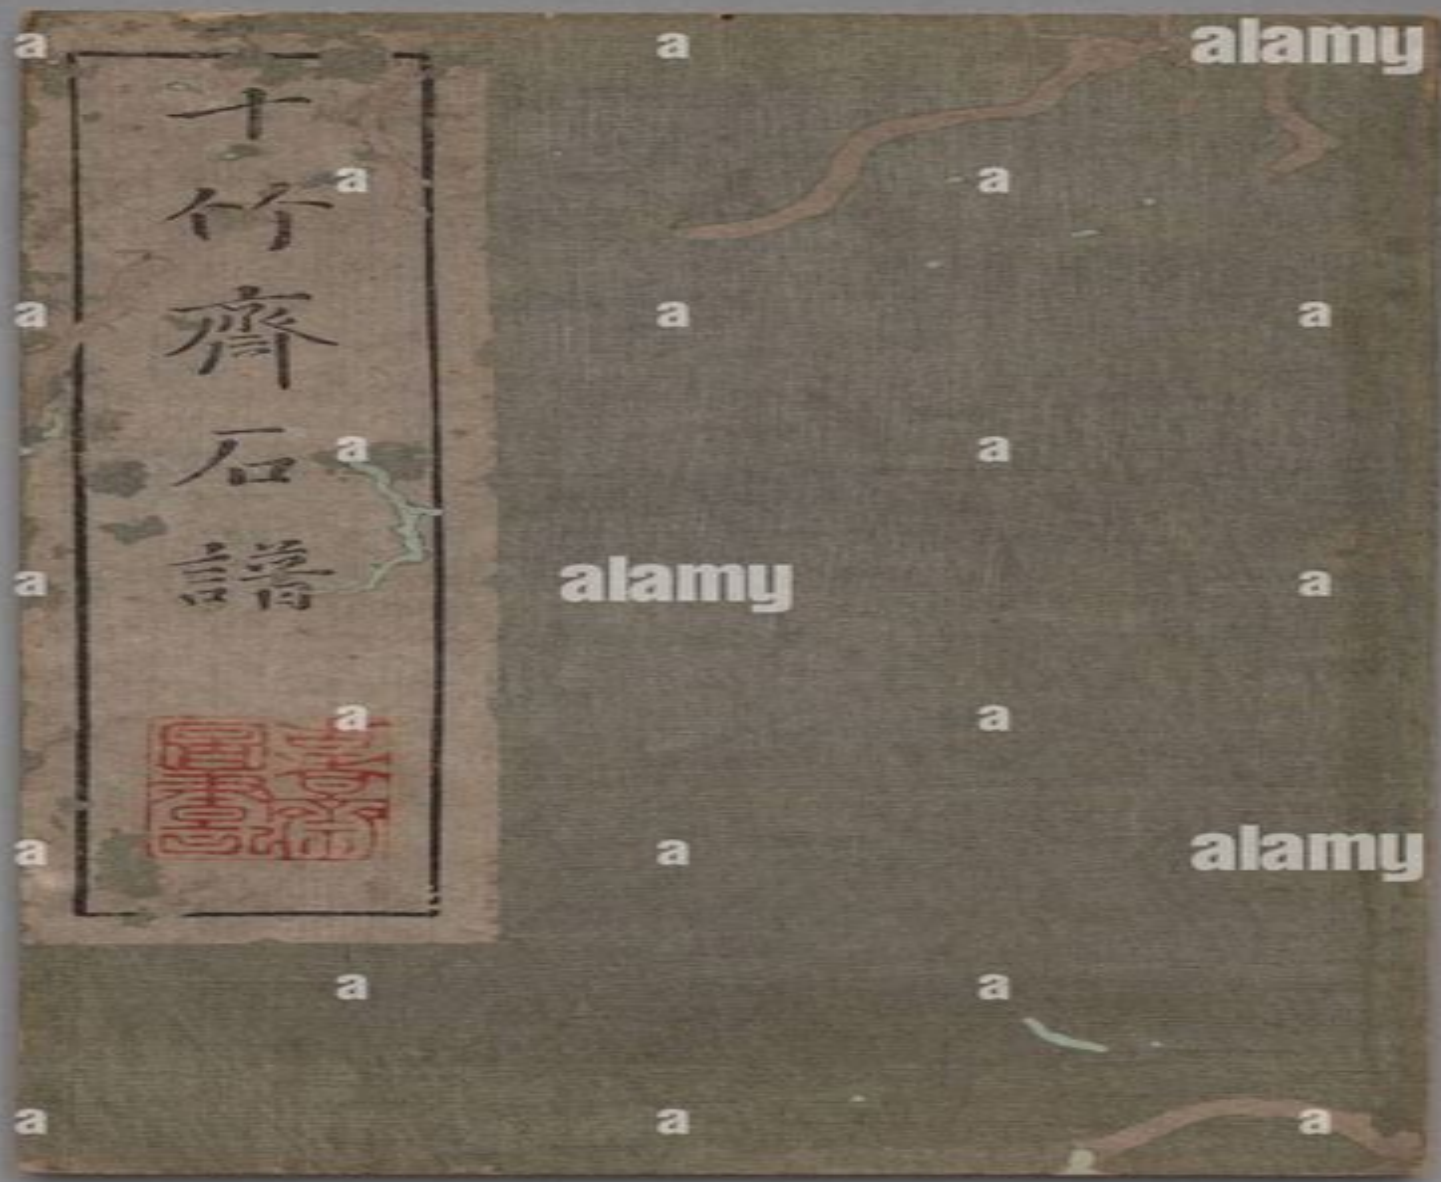 十竹齋石譜
alamy
alamy
alamy